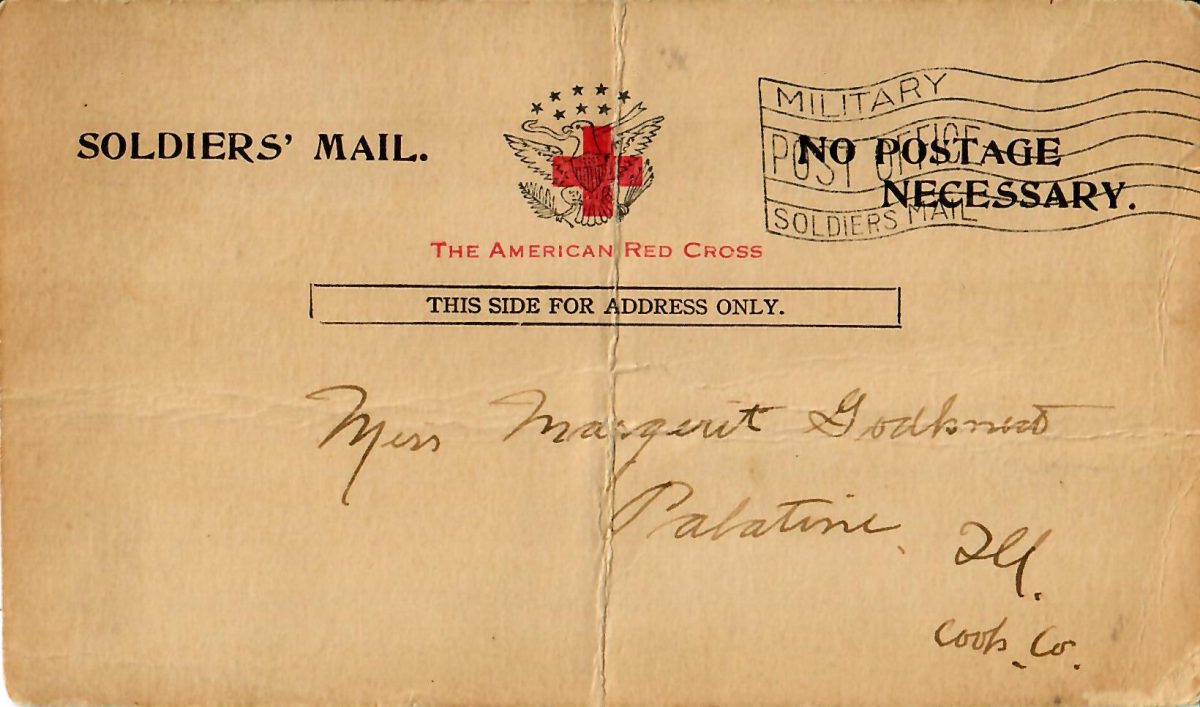 SOLDIERS' MAIL.
MILITARY
POST OFFICE
SOLDIERS MAIL
NO POSTAGE
NECESSARY.
THE AMERICAN RED CROSS
THIS SIDE FOR ADDRESS ONLY.
Miss Margerit Godknecht
Palatine, Ill.
Cook. Co.